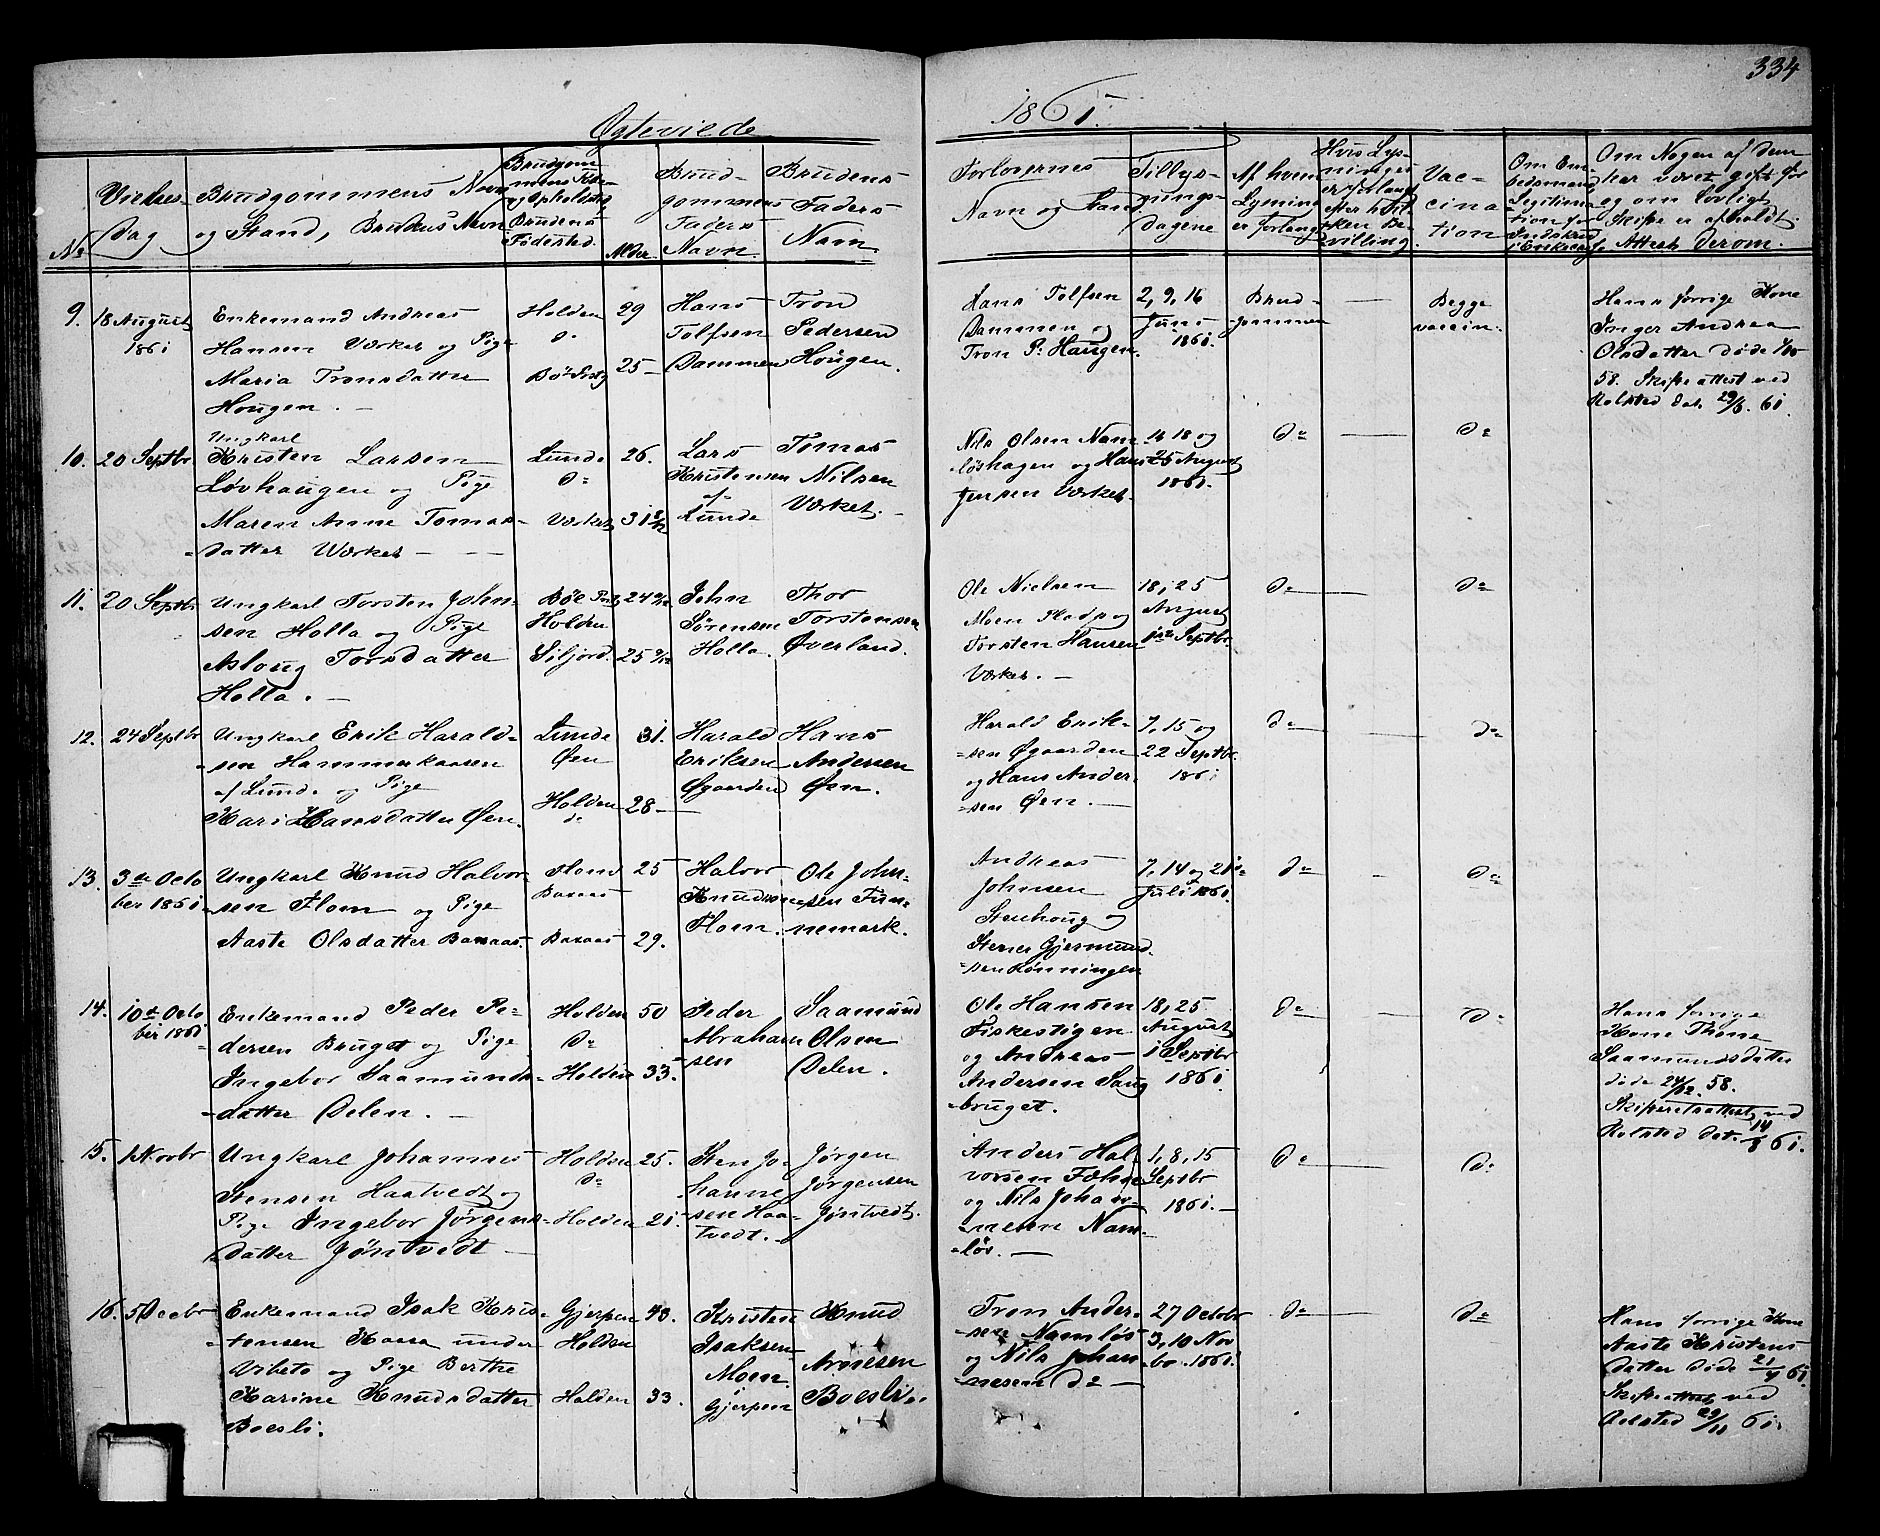 334
Ogteviede
1861.
No
Vielses-
Dag
Brudgommens Navn
og Stand, Brudens Navn
Brudgom-
mens Føde-
og Opholdsted
Brudens
Fødested.
Alder.
Brud-
gommens
Faders
Navn.
Brudens
Faders
Navn.
Forlovernes
Navn og Stand
Tillys-
nings-
dagene
Af hvem
Lysning
er forlangt
Hvis Lys-
ninger
er forlangt
efter hvil-
ken Be-
villing.
Vac-
cina
tion
Om Em-
bedsmand
Legitima
tion for
Indskud
i Enkecas.
Om Nogen af dem
har været gift før
og om lovligt
Skifte er afholdt.
Attest derom.
9. 18 August
1861
Enkemand Andreas
Hansen Værket og Pige
Maria Tronsdatter
Hougen. —
Holden
do
Bø Prstg
29
25 —
Hans
Tolfsen
Dammen
Tron
Pedersen
Hougen.
Hans Tolfsen
Dammen og
Tron P: Haugen.
2, 9, 16
Juni
1861.
Brud-
gommen
—
Begge
vaccin.
Hans forrige Kone
Inger Andrea
Olsdatter døde
58. Skifteattest ved
Rolsted dat. 29/5. 61.
10. 20 Septbr
Ungkarl
Kristen Larsen
Løvhaugen og Pige
Maren Anne Tomas-
datter Værket —
Lunde
do
Værket
26.
31
Lars
Kristensen
af
Lunde
Tomas
Nilsen
Værket. —
Nils Olsen Nam-
løshagen og Hans
Jensen Værket.
18 og
25 August
1861.
do
—
do
11. 20 Septbr
Ungkarl Torsten John-
sen Holla og Pige
Asloug Torsdatter
Holta. —
Bøe Pstg
Holden
Siljord.
24
25
John
Sørensen
Holta.
Thor
Torstensen
Øverland.
Ole Nielsen
Moen Pladp og
Torsten Hansen
Værket. —
18, 25
August
1ste Septbr.
do
—
do
12. 24 Septbr
Ungkarl Erik Harald-
sen Hammerkaasen
af Lunde og Pige
Kari Hansdatter Øen.
Lunde
Øen
Holden
do
31.
28 —
Harald
Eriksen
Øgaarden
Hans
Andersen
Øen.
Harald Erik-
sen Øgaarden
og Hans Ander-
sen Øen. —
7, 15 og
22 Septbr.
1861
do
—
do
13. 3de Octo
ber 1861
Ungkarl Knud Halvor-
sen Flom og Pige
Aaste Olsdatter Baxaas.
Baxaas
Baxaas
25
29.
Halvor
Knudsen
Flom.
Ole John-
sen Fun-
nemark.
Andreas
Johnsen
Stenhoug og
Stener Gjermund-
sen Rønningen
7, 14 og 21
Juli 1861.
do
-
do
14. 10de Octo
ber 1861
Enkemand Peder Pe-
dersen Bruget og Pige
Ingebor Saamunds-
datter Delen. —
Holden
do
Holden
50
33.
Peder
Abraham
sen
Saamund
Olsen
Delen.
Ole Hansen
Fiskestigen
og Andreas
Andersen Saug
bruget.
18, 25
August
1 Septbr
1861.
do
—
do
Hans forrige
Kone Thone
Saamundsdatter
døde 24/12. 58.
Skifteretsattest ved
Rolsted dat. 14/8 61.
15. 1 Novbr
Ungkarl Johannes
Stensen Haatvedt og
Pige Ingebor Jørgens-
datter Jøntvedt —
Holden
do
Holden
25.
21.
Sten Jo-
hanne
sen Haa-
tvedt. -
Jørgen
Jørgensen
Jøntvedt.
Anders Hal-
vorsen Fæhn
og Nils Johan-
nesen Nam-
løs. —
1, 8, 15
Septbr
1861. —
do
—
do
16. 5 Decbr
Enkemand Isak Kris-
tensen Kaasa under
Vibeto og Pige Berthe
Karine Knudsdatter
Boesli.
Gjerpen
Holden
Holden
43.
33.
Kristen
Isaksen
Moen
i
Gjerpen
Knud
Arnesen
Boesli.
Tron Ander-
sen Namløs
og Nils Johan-
nesen do —
27 Octobr
3, 10 Nov
br. 1861.
do
—
do
Hans forrige Kone
Aaste Kristens
datter døde 21/4 61.
Skifteattest ved
Rolsted 29/11 61.